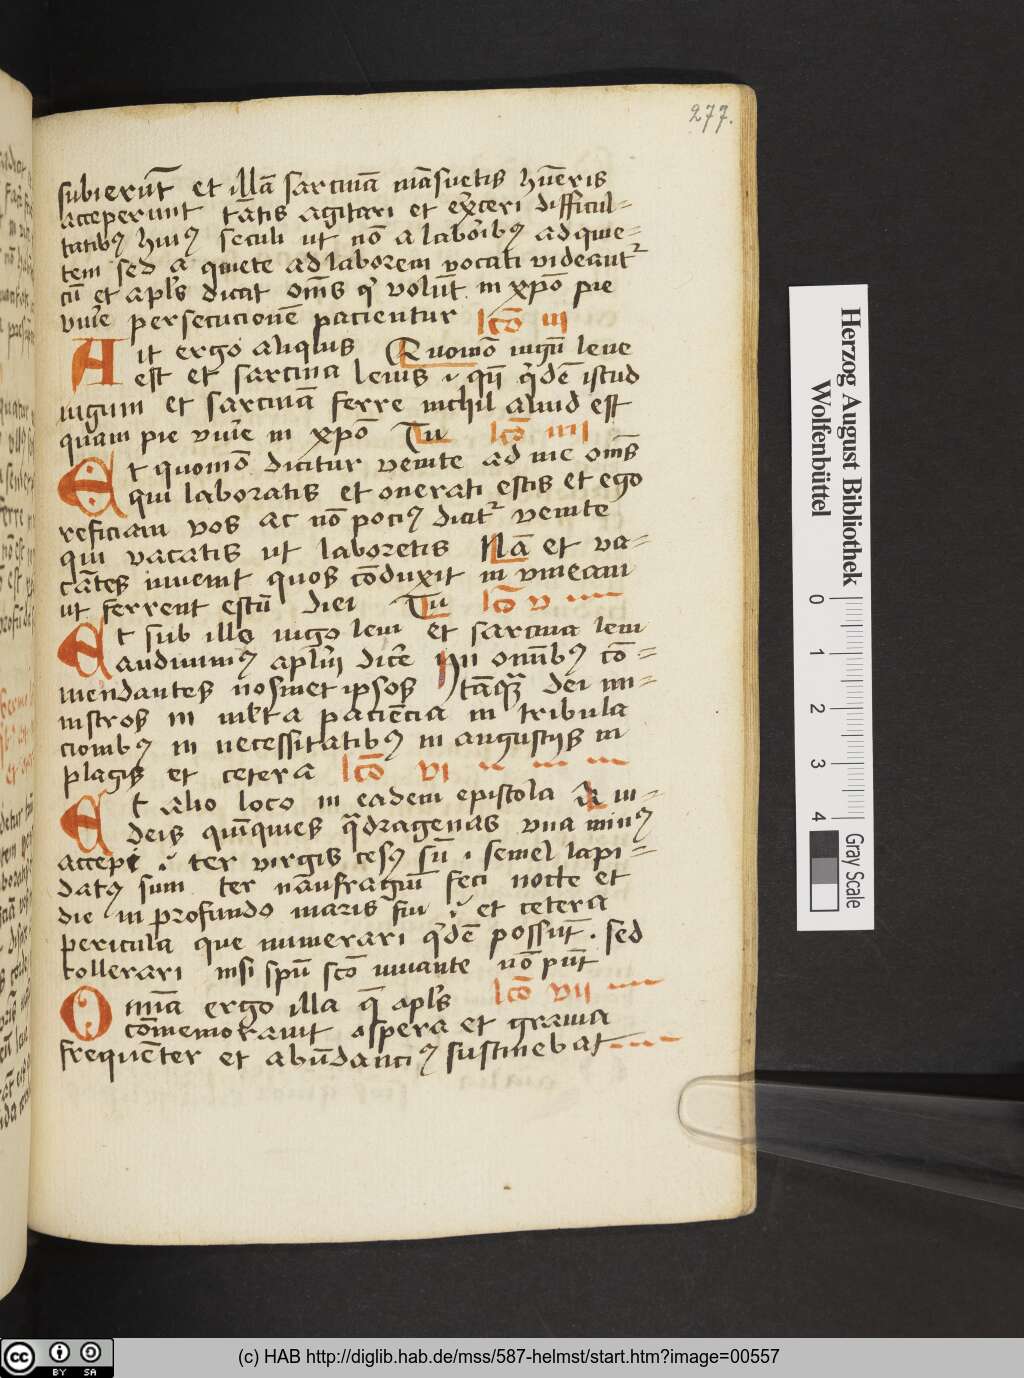 277.
subierūt et illā sarcinā māsuetis hūeris
acceperunt tātis agitari et ex̄ceri difficul=
tatibꝯ huiꝯ seculi ut nō a laboribꝯ ad quie=
tem sed a quiete ad laborem vocati videant᷑
cū et apl̄s dicat om̄s q̓ volūt in xp̄o pie
viūe persecucionē pacientur lc̄o iii
Ait ergo aliquis Quomō iugū leue
est et sarcina leuis ·i· qn̄ q̓dē istud
iugum et sarcinā ferre nichil aliud est
quam pie viūe in xp̄o Tu lc̄o iiii
Et quomō dicitur venite ad me om̄s
qui laboratis et onerati estis et ego
reficiam vos ac nō pociꝯ dicit᷑ venite
qui vacatis ut laboretis Nā et va=
cātes inuenit quos cōduxit in vineam
ut ferrent estū diei Tu lc̄o v
Et sub illo iugo leui et sarcina leui
audiuimꝯ apl̄m dicē In oīnibꝯ cō=
mendantes nosmet ipsos tāq̄ dei mi=
nistros in ml̄ta paciēcia in tribula
cionibꝯ in necessitatibꝯ in angustijs in
plagis et cetera lc̄o vi
Et alio loco in eadem epistola A iu=
deis quīquies q̄dragenas vna minꝯ
accepi ·i· ter virgis cesꝯ sū · semel lapi=
datꝯ sum ter naufragiū feci nocte et
die in profundo maris fui ·i· et cetera
pericula que numerari q̓dē possūt · sed
tollerari nisi spū scō iuuante nō pn̄t
Omnia ergo illa q̄ apl̄s lc̄o vii
cōmemorauit aspera et grauia
frequēter et abūdanciꝯ sustinebat
Herzog August Bibliothek
Wolfenbüttel
0 1 2 3 4
Gray Scale
cc BY SA
(c) HAB http://diglib.hab.de/mss/587-helmst/start.htm?image=00557